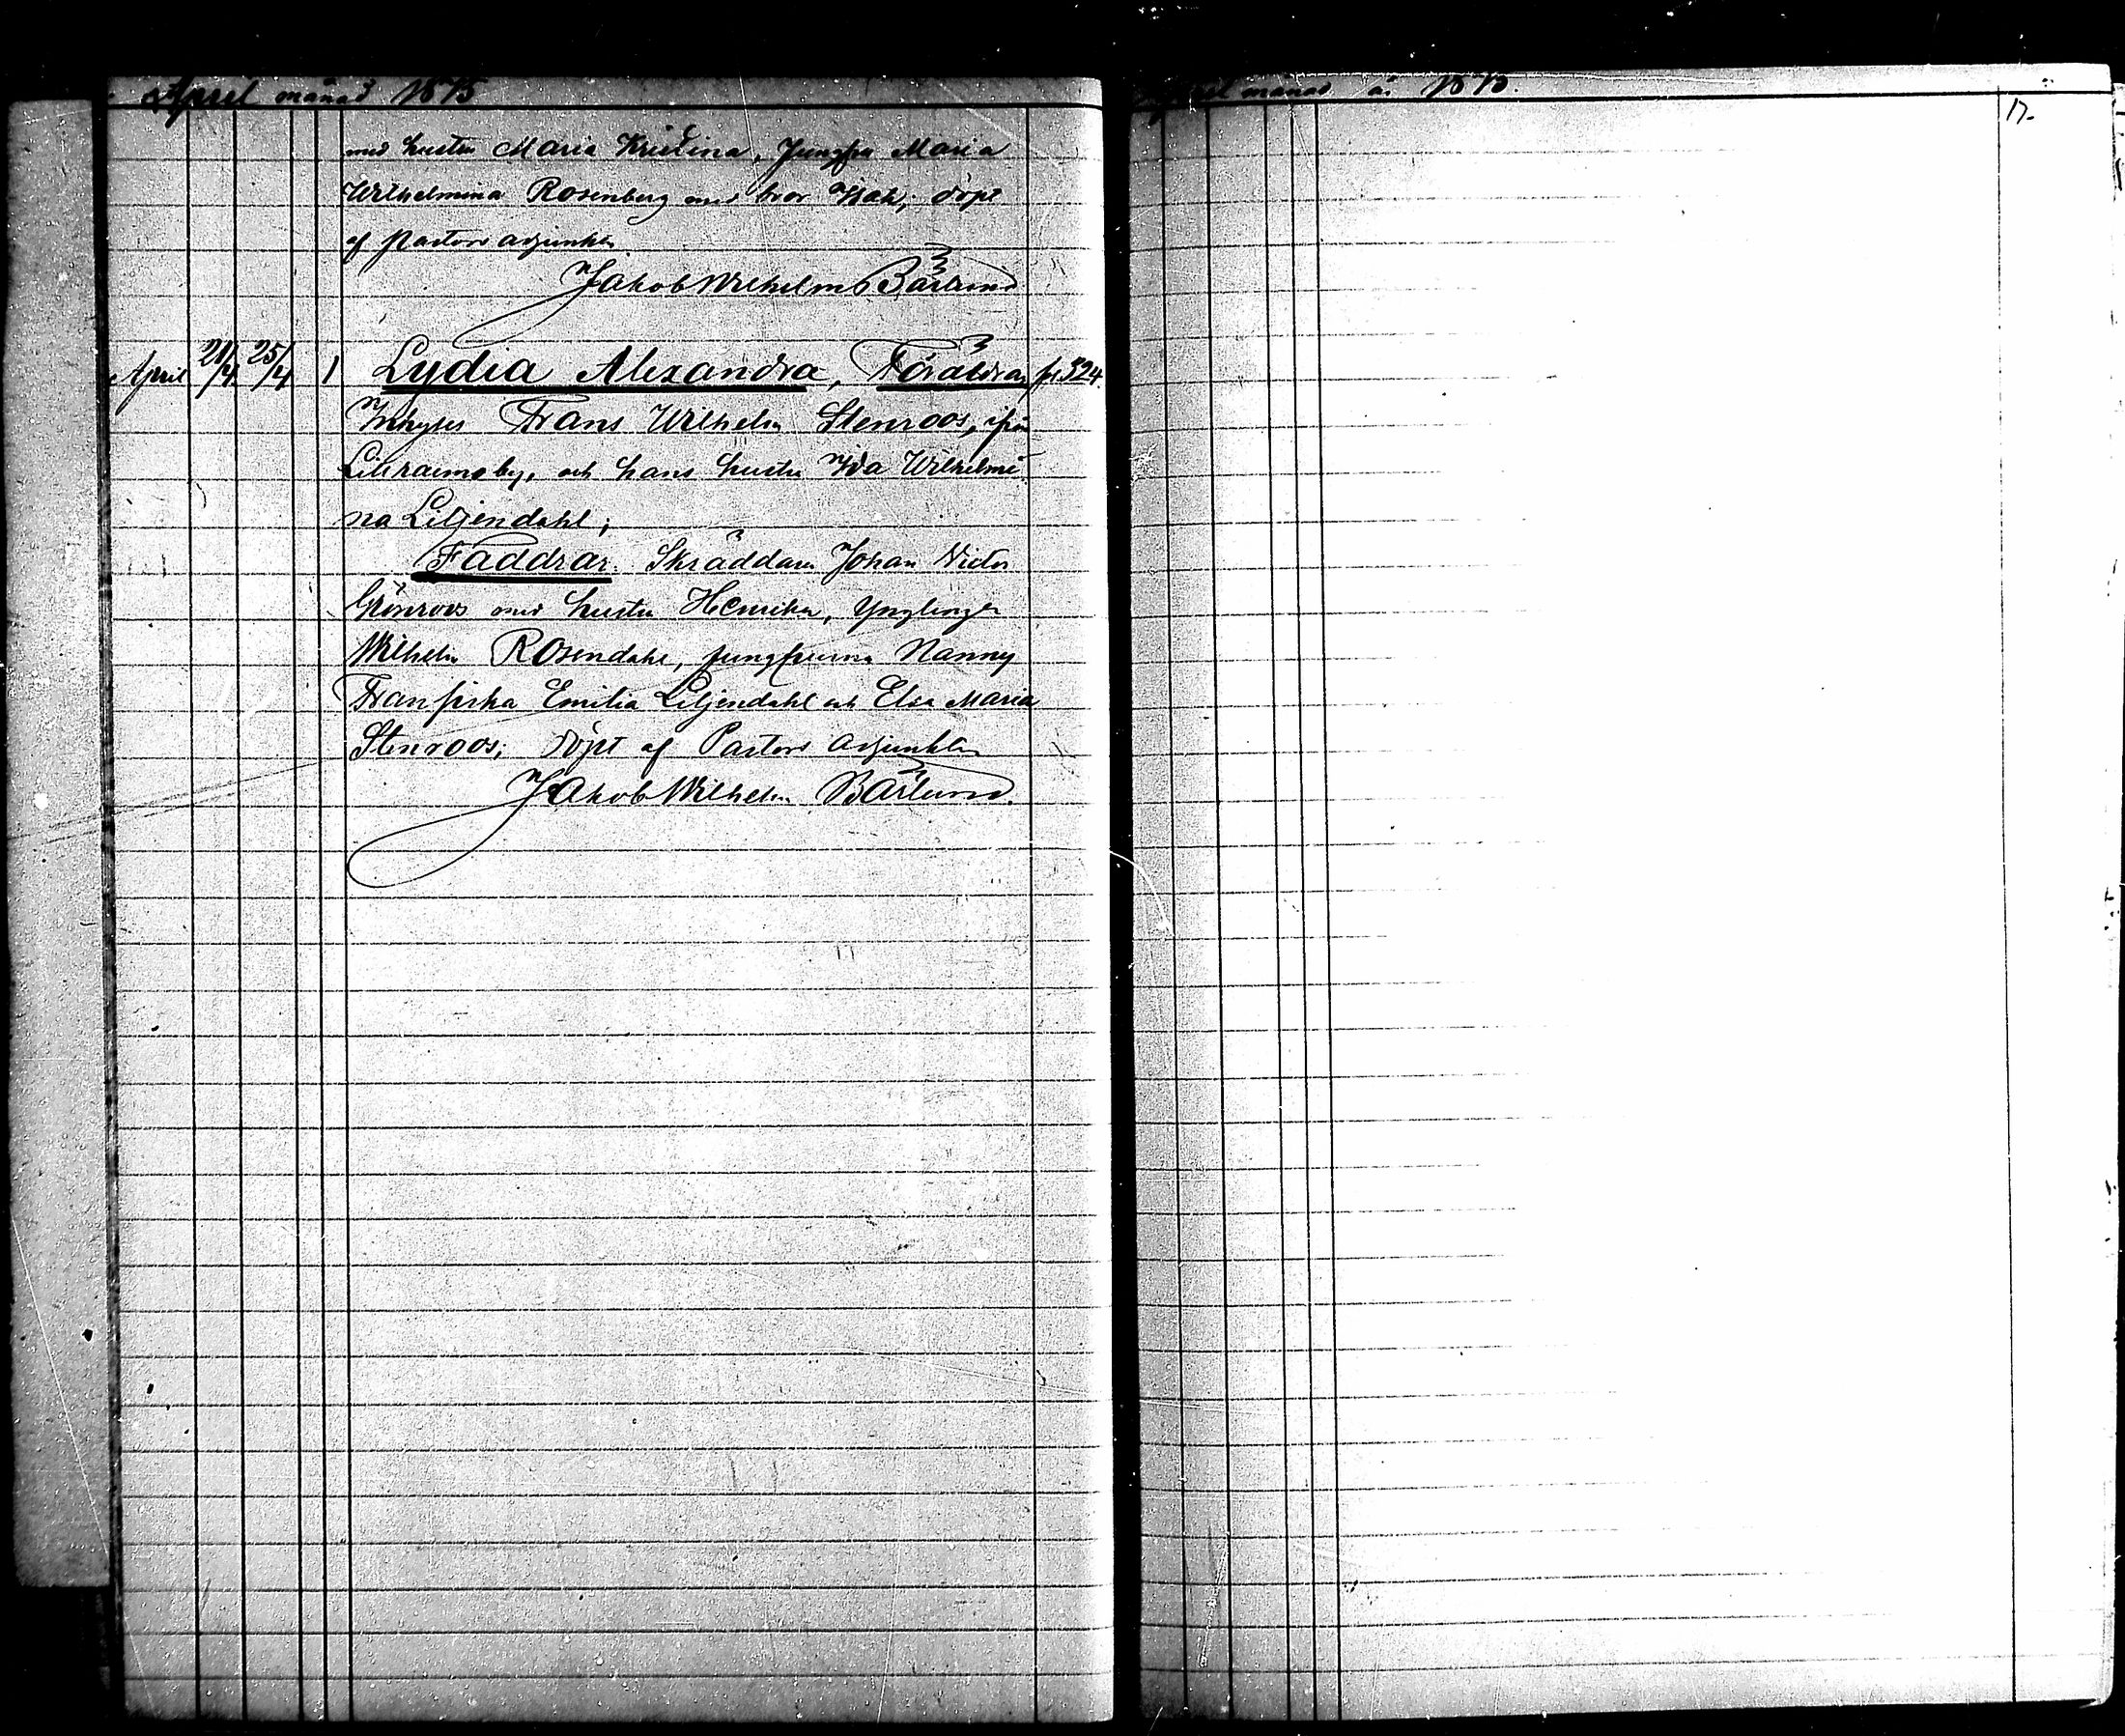 April månad 1875
med hustru Maria Kristina, Jungfru Maria
Wilhelmina Rosenberg med bror Isak; döpt
af Pastors adjunkten
Jakob Wilhelm Bärlund
April 21/4 25/4 1 Lydia Alexandra, Föräldrar, p. 324
Inhyses Frans Wilhelm Stenroos, ifrån
by, och hans hustru Ida Wilhelmi
na Liljendahl;
Faddrar. Skräddaren Johan Victor
Grönroos med hustru Henrika, Ynglingen
Wilhelm Rosendahl, jungfrurna Nanny
Fransiska Emilia Liljendahl och Elsa Maria
Stenroos; döpt af Pastors adjunkten
Jakob Wilhelm Bärlund.
April månad år 1875.
17.